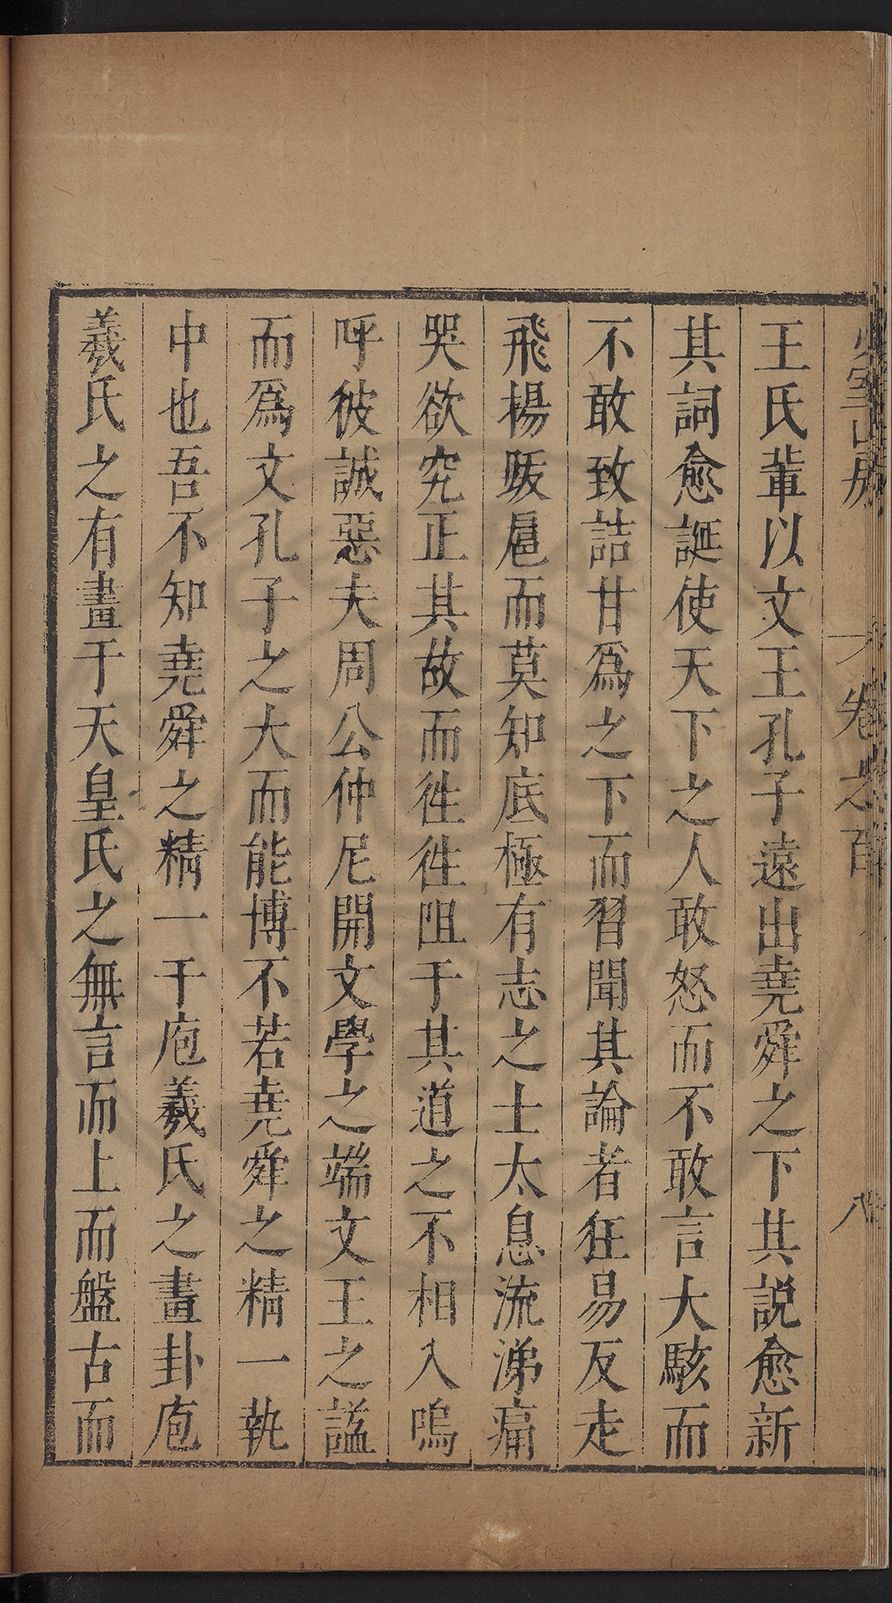 少室山房
卷之百
八
王氏輩以文王孔子遠出堯舜之下其説愈新
其詞愈誕使天下之人敢怒而不敢言大駭而
不敢致詰甘爲之下而習聞其論者狂易反走
飛揚跋扈而莫知底極有志之士太息流涕痛
哭欲究正其故而徃徃咀于其道之不相入嗚
呼彼誠惡夫周公仲尼開文學之端文王之謚
而爲文孔子之大而能博不若堯舜之精一執
中也吾不知堯舜之精一于庖羲氏之畫卦庖
羲氏之有畫于天皇氏之無言而上而盤古而